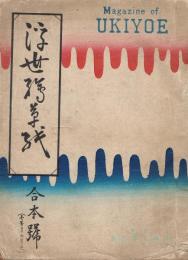 Magazine of
UKIYOE
浮世繪草紙
合本號